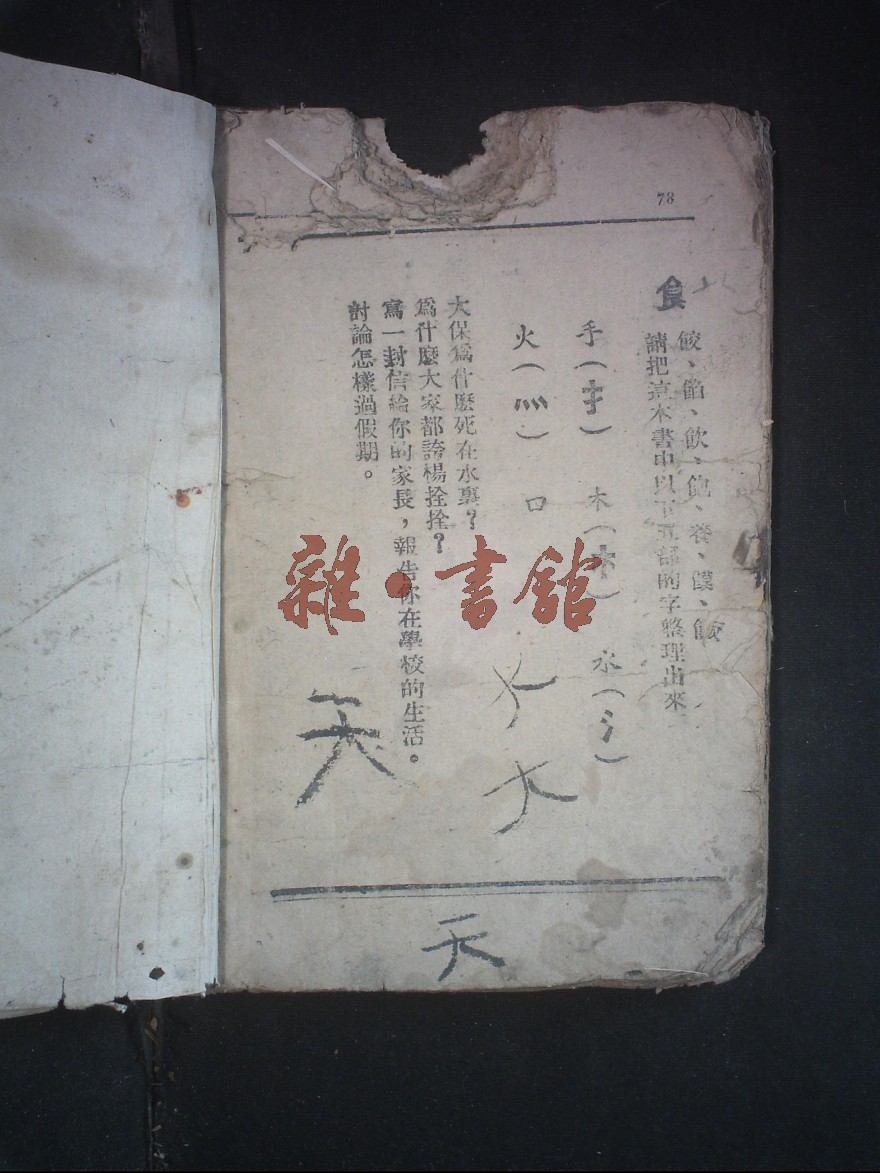 73
食
餃、餡、飲、飽、養、饃、飯
請把這本書中以下五部的字整理出來
手(扌) 木(木) 水(氵)
火(灬) 口
大保爲什麼死在水裏?
爲什麼大家都誇楊拴拴?
寫一封信給你的家長,報告你在學校的生活。
討論怎樣過假期。
雜·書館
大
大
天
天